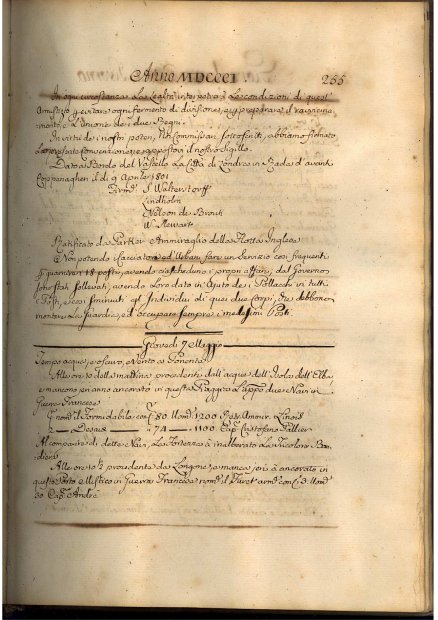 Anno MDCCCI 255
In ogni circostanza La Lealtà interpetrerà Le condizioni di quest'
Amistizio p evitare ogni fermento di divisione, e p preparare il
mento, e L'unione dei due Regni.
In virtù dei nostri poteri, Noi Commissari sottoscritti, abbiamo firmato
La presente convenzione, e appostovi il nostro Sigillo.
Dato a Bordo del Vascello La Città di Londra in Rada d'avanti
Coppenaghen il dì 9 Aprile 1801
Firmati S. Walterstorff
Lindholm
Nelson de Bronti
W. Stewart
Ratificato da Parker Ammiraglio della Flotta Inglese
Non potendo i Cacciatori ed Urbani fare un Servizio così frequente
p guarnire i 18 posti, avendo ciascheduno i propri affari, dal Governo
sono stati sollevati, avendo Loro dato in Ajuto dei Pollacchi in tutti
i Posti, e così sminuiti gl'Individui di quei due Corpi, che debbono
montare La Guardia, ed occupare sempre i medesimi Posti.
Giovedì 7 Maggio
Tempo acquoso, e scuro, e Vento a Ponente
Alle ore 10 della mattina procedenti dall'acque dell'Isola dell'Elba
e mancano, ed anno ancorato in questa Piaggia La appo due Navi in
Guerra Francese
L' nom: il Formidabile con C. 80 Uom: 1200 Contr'Ammir. Linois
2 — Desaix — " 74 — " 1100 Cap. Cristofano Pallier
Al comparire di dette Navi, La Fortezza à inalberato La Tricolore Ban-
diera
Alle ore 10½ procedente da Longone, e manca jeri à ancorato in
questo Porto e Mistico in Guerra Francese nom: il Furet arm: con C. 3 Uom:
30 Cap. André